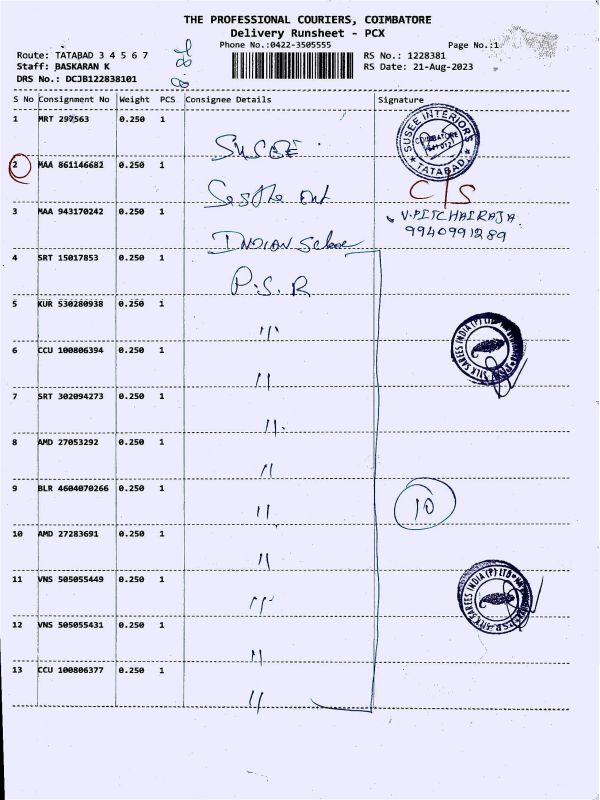 THE PROFESSIONAL COURIERS, COIMBATORE
Delivery Runsheet - PCX
Phone No.:0422-3505555
Page No.:1
Route: TATABAD 3 4 5 6 7
RS No.: 1228381
Staff: BASKARAN K
RS Date: 21-Aug-2023
DRS No.: DCJB122838101
S No Consignment No Weight PCS Consignee Details Signature
1 MRT 297563 0.250 1
SUSEE
SUSEE INTERIORS
COIMBATORE
641 012
TATABAD
2 MAA 861146682 0.250 1
C/S
3 MAA 943170242 0.250 1
V.PITCHAIRAJA
9940991289
INDIAN
4 SRT 15017853 0.250 1
P.S.R
5 KUR 530280938 0.250 1
"
SILK SAREES INDIA (P) LTD
6 CCU 100806394 0.250 1
"
7 SRT 302094273 0.250 1
"
8 AMD 27053292 0.250 1
"
9 BLR 4604070266 0.250 1
"
10
10 AMD 27283691 0.250 1
"
11 VNS 505055449 0.250 1
"
P.S.R. SILK SAREES INDIA (P) LTD
12 VNS 505055431 0.250 1
"
13 CCU 100806377 0.250 1
"